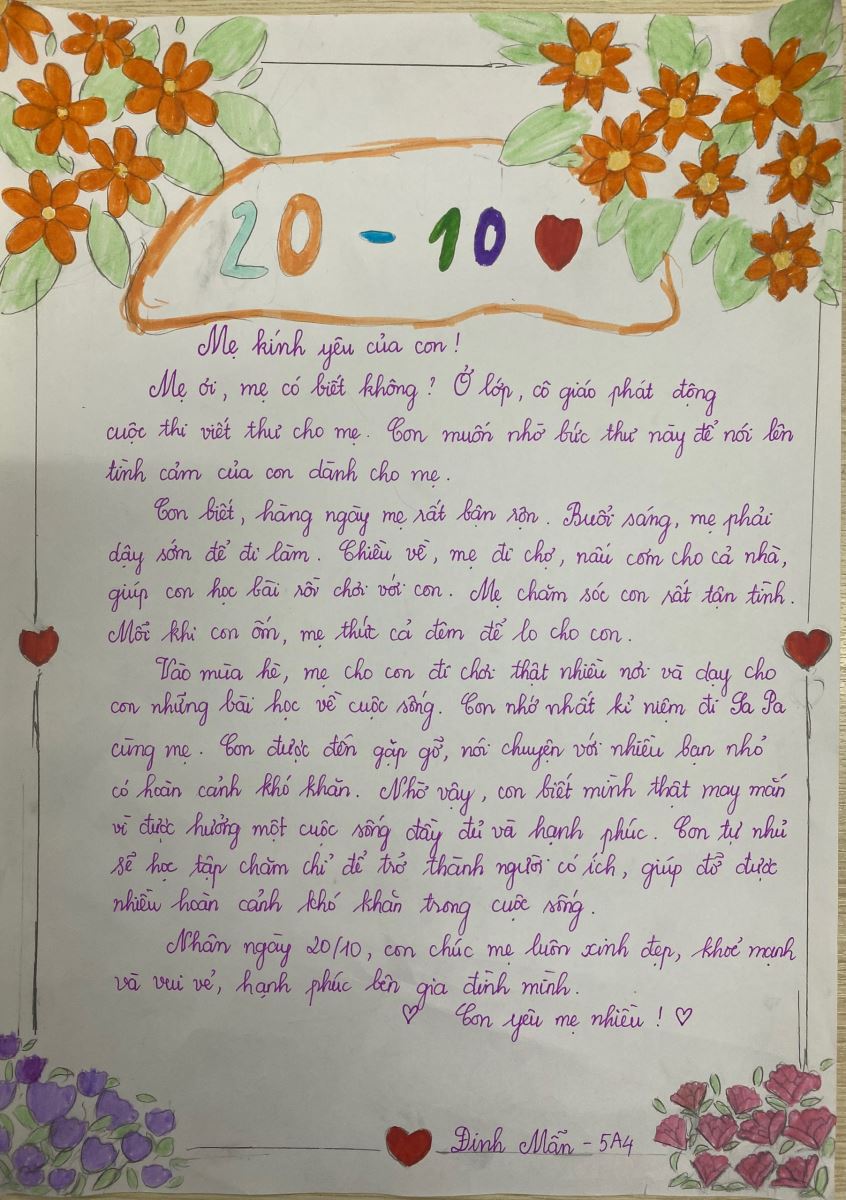 20 - 10
Mẹ kính yêu của con !
Mẹ ơi, mẹ có biết không ? Ở lớp, cô giáo phát động
cuộc thi viết thư cho mẹ. Con muốn nhờ bức thư này để nói lên
tình cảm của con dành cho mẹ.
Con biết, hàng ngày mẹ rất bận rộn. Buổi sáng, mẹ phải
dậy sớm để đi làm. Chiều về, mẹ đi chợ, nấu cơm cho cả nhà,
giúp con học bài rồi chơi với con. Mẹ chăm sóc con rất tận tình.
Mỗi khi con ốm, mẹ thức cả đêm để lo cho con.
Vào mùa hè, mẹ cho con đi chơi thật nhiều nơi và dạy cho
con những bài học về cuộc sống. Con nhớ nhất kỉ niệm đi Sa Pa
cùng mẹ. Con được đến gặp gỡ, nói chuyện với nhiều bạn nhỏ
có hoàn cảnh khó khăn. Nhờ vậy, con biết mình thật may mắn
vì được hưởng một cuộc sống đầy đủ và hạnh phúc. Con tự nhủ
sẽ học tập chăm chỉ để trở thành người có ích, giúp đỡ được
nhiều hoàn cảnh khó khăn trong cuộc sống.
Nhân ngày 20/10, con chúc mẹ luôn xinh đẹp, khoẻ mạnh
và vui vẻ, hạnh phúc bên gia đình mình.
♡ Con yêu mẹ nhiều ! ♡
Đinh Mẫn - 5A4